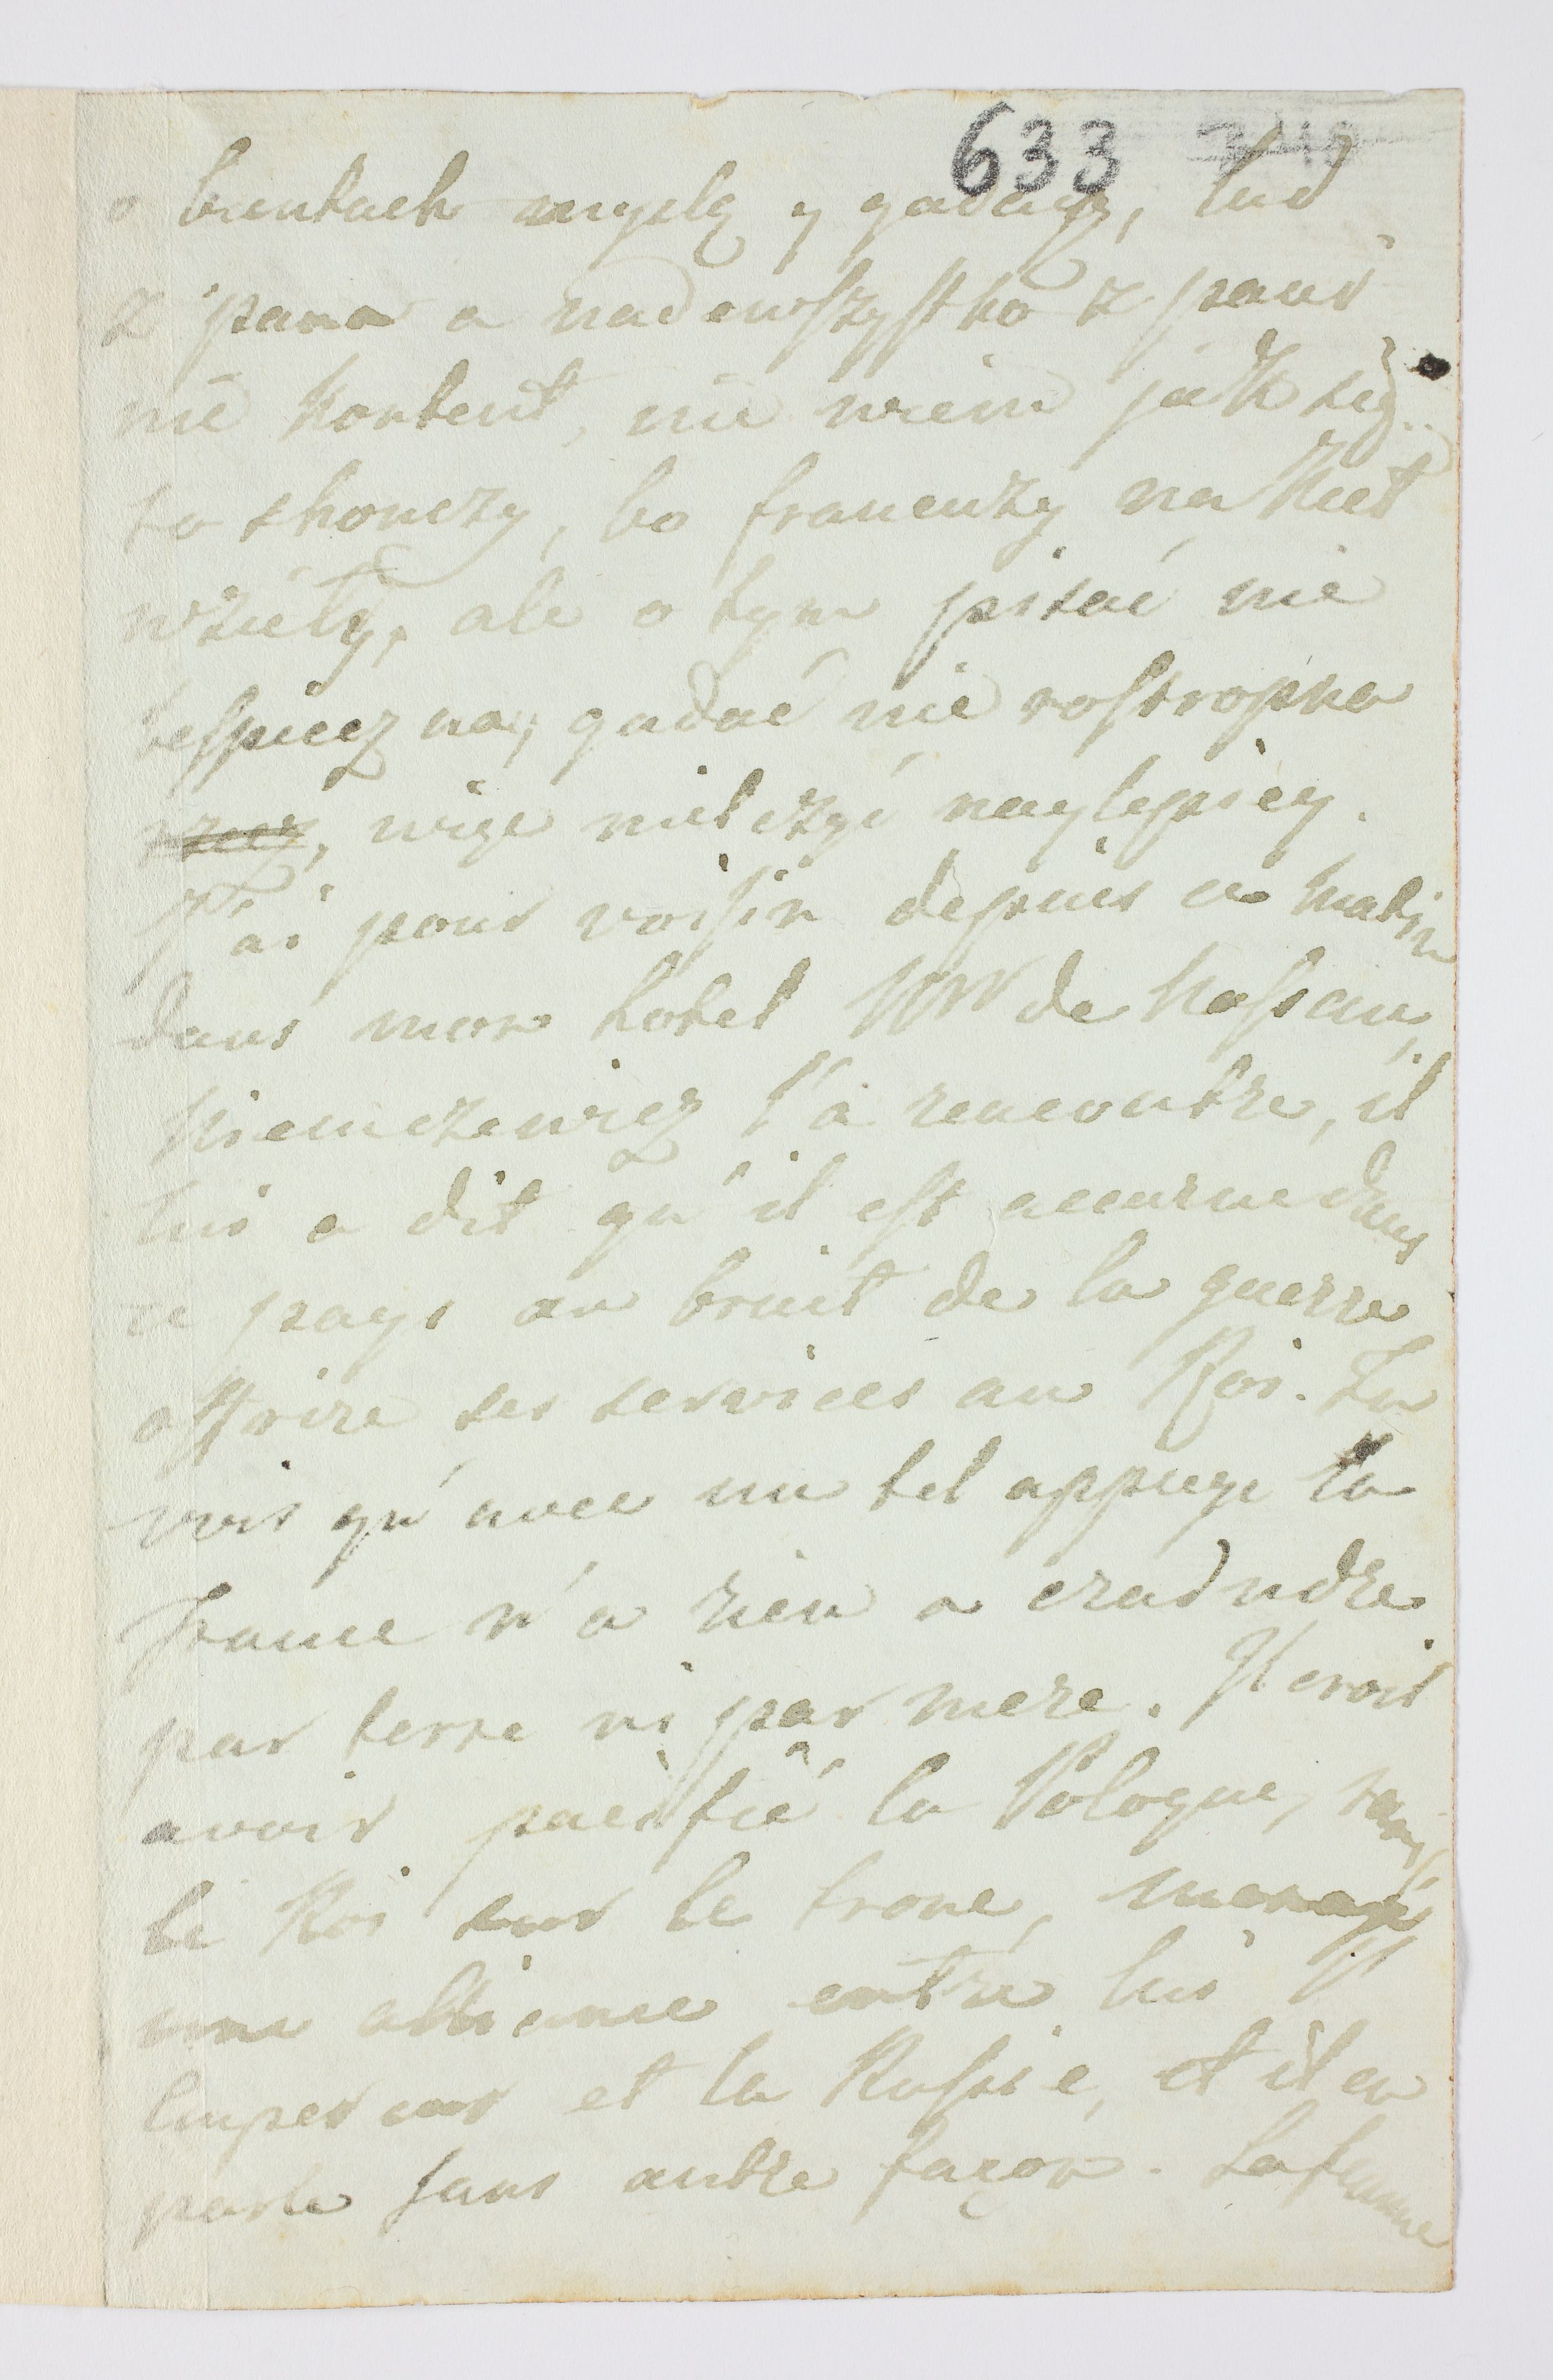 633
o buntach myslą y gadaią, lud
z pana a nadewszystko z pani
nie kontent, nie wiem jak się
to skonczy, bo francuzy na kieł
wzieły, ale o tym pisać nie
bespieczna, gadać nie rostropna
rzecz, więc milczyć naylepiey.
J'ai pour voisin depuis ce matin
dans mon hotel Mr de Nassau,
Niemczewicz l'a rencontre, il
lui a dit qu'il est accurue dans
ce pays au bruit de la guerre
offrire ses services au Roi. Tu
vois qu'avec un tel appuye la
France n'a rien a craindre
par terre ni par mere. Il croit
avoir pacifié la Pologne,
le Roi sur le trone, menagé
une alliance entre lui l'
Empereur et la Russie, et il en
parle sans autre façon. Sa femme